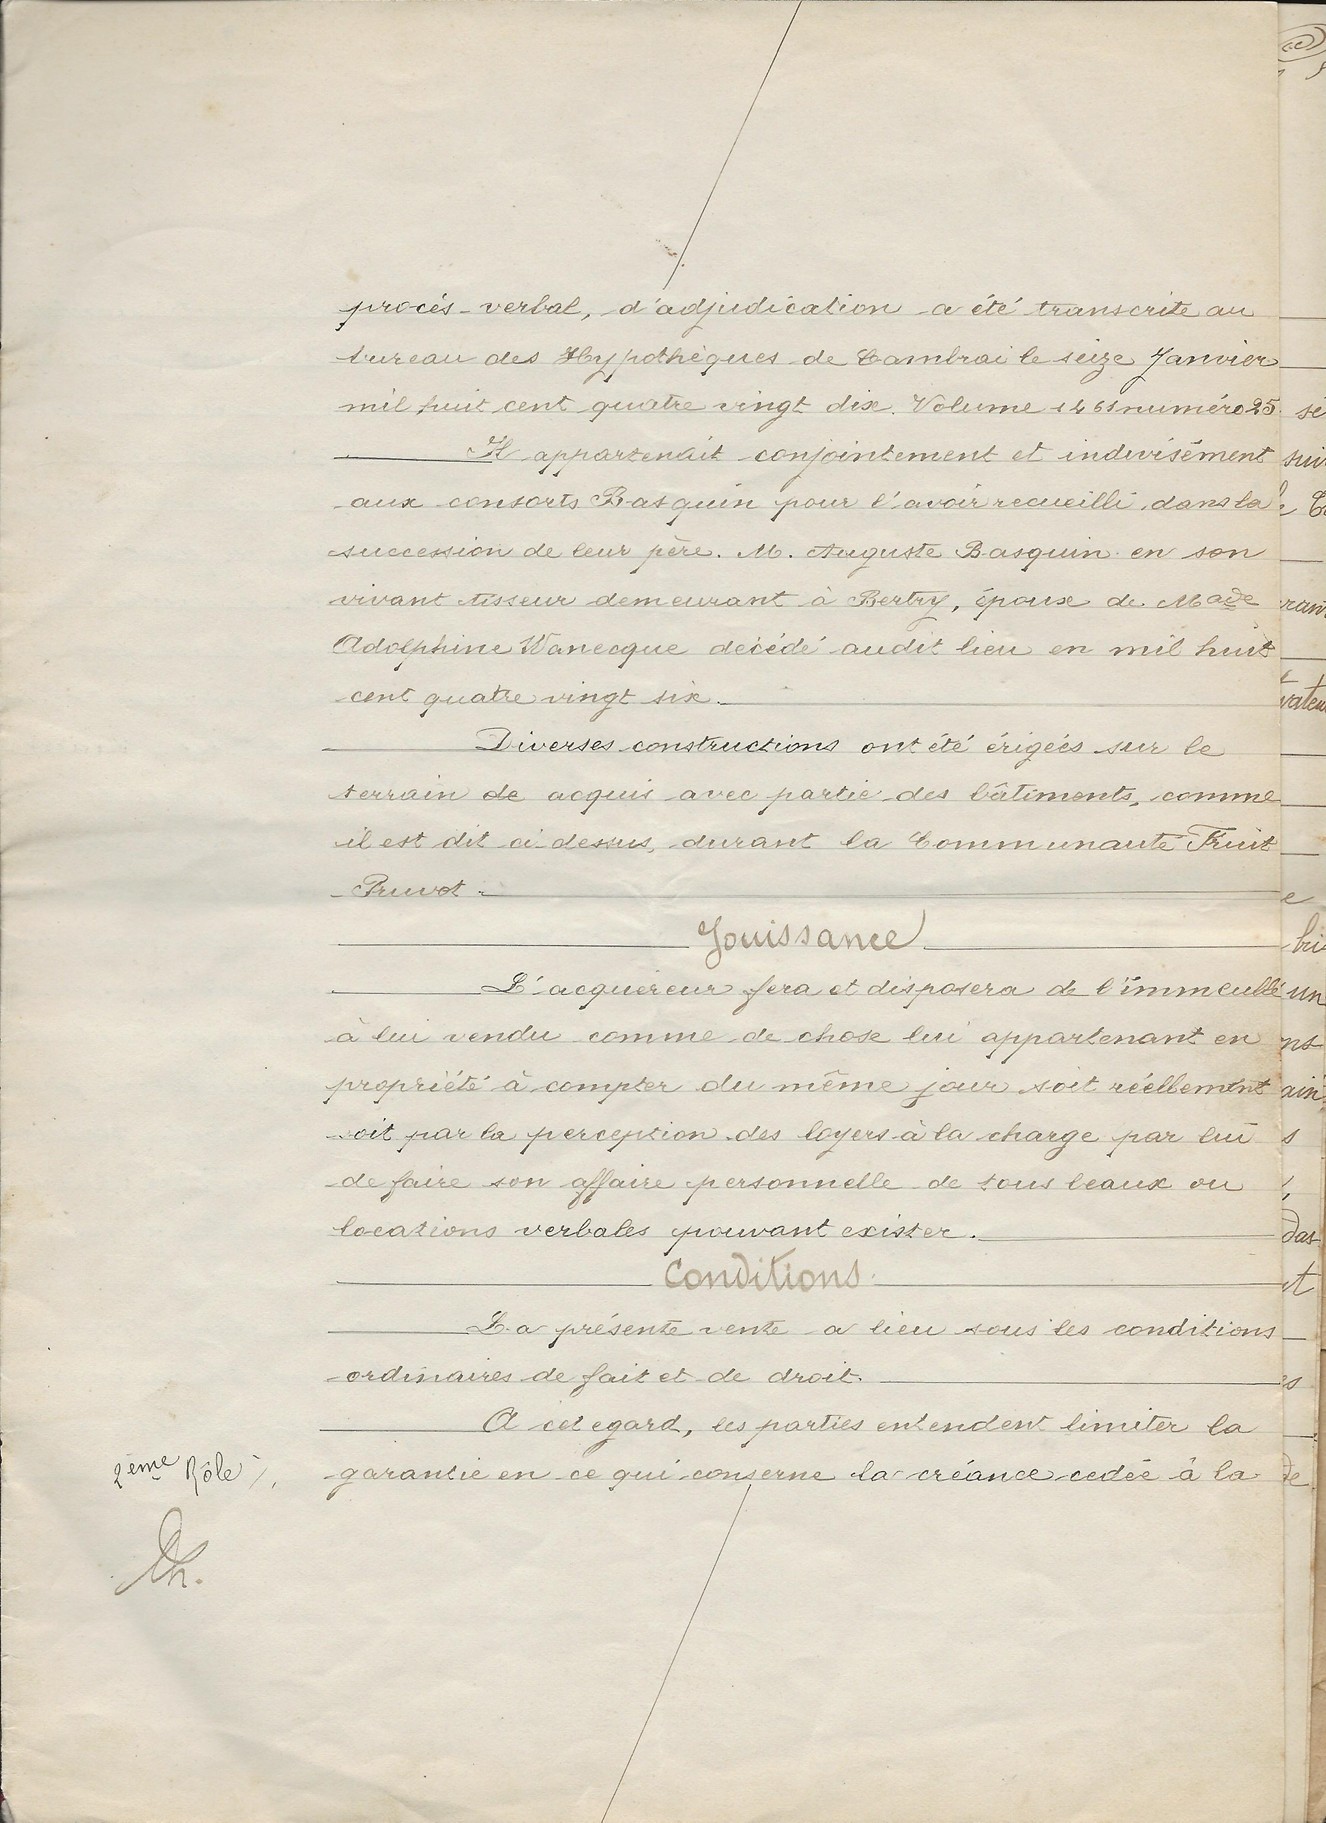 procès-verbal, d'adjudication a été transcrite au
bureau des Hypothèques de Cambrai le seize Janvier
mil huit cent quatre vingt dix. Volume 1461 numéro 25
Il appartenait conjointement et indivisément
aux consorts Basquin pour l'avoir recueilli dans la
succession de leur père. M. Auguste Basquin en son
vivant tisseur demeurant à Bertry, époux de Made
Adolphine Wanecque décédé audit lieu en mil huit
cent quatre vingt six.
Diverses constructions ont été érigées sur le
terrain de acquis avec partie des bâtiments, comme
il est dit ci-dessus, durant la Communauté Fruit
Pruvot.
Jouissance
L'acquéreur fera et disposera de l'immeuble
à lui vendu comme de chose lui appartenant en
propriété à compter du même jour soit réellement
soit par la perception des loyers à la charge par lui
de faire son affaire personnelle de tous beaux ou
locations verbales pouvant exister.
Conditions.
La présente vente a lieu sous les conditions
ordinaires de fait et de droit.
A cet egard, les parties entendent limiter la
2ème Rôle garantie en ce qui conserne la créance cedée à la